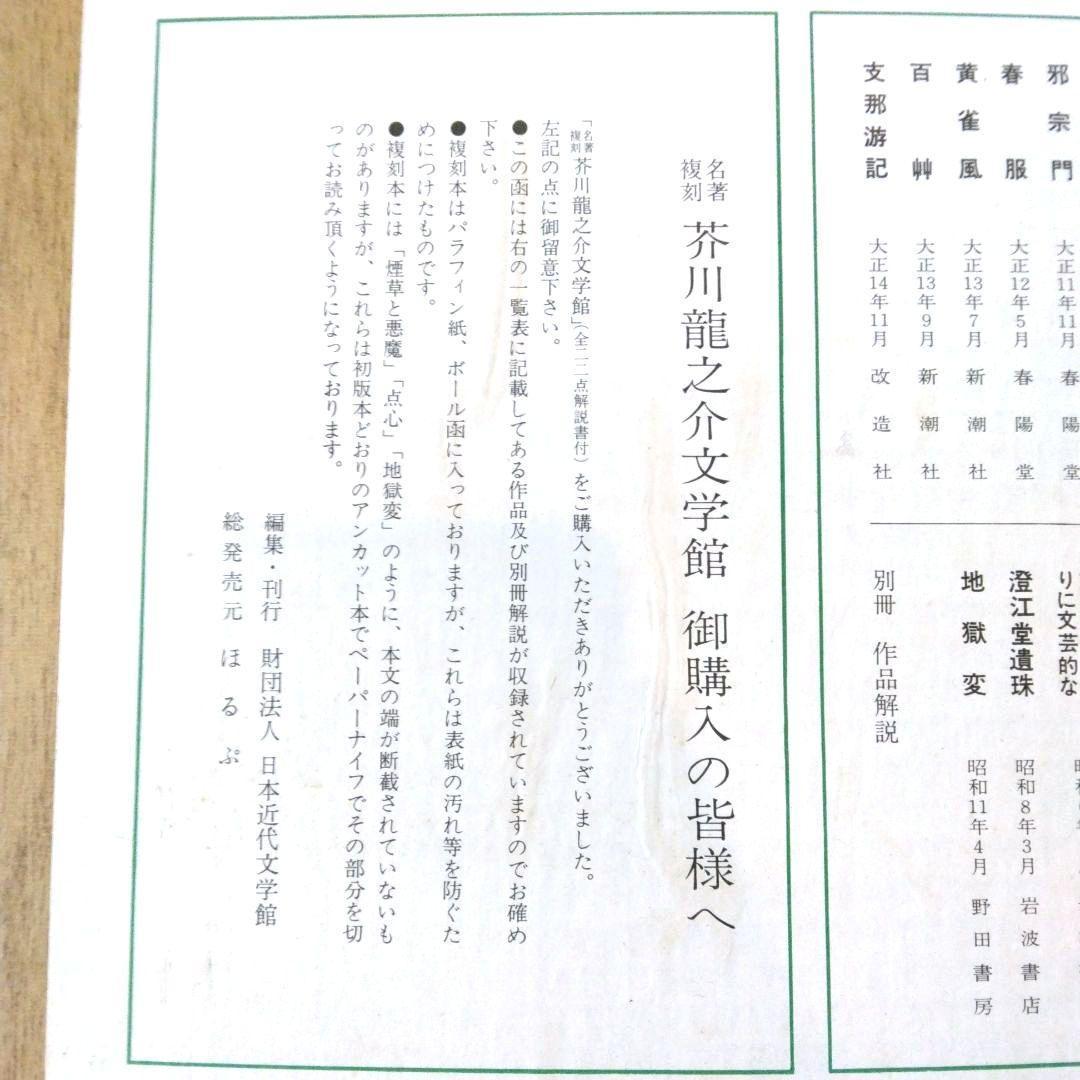 邪宗門 大正11年11月 春陽堂
春服 大正12年5月 春陽堂
黄雀風 大正13年7月 新潮社
百艸 大正13年9月 新潮社
支那游記 大正14年11月 改造社
りに文芸的な
澄江堂遺珠 昭和8年3月 岩波書店
地獄変 昭和11年4月 野田書房
別冊 作品解説
名著複刻 芥川龍之介文学館 御購入の皆様へ
「名著複刻芥川龍之介文学館」（全二二点解説書付）をご購入いただきありがとうございました。
左記の点に御留意下さい。
●この函には右の一覧表に記載してある作品及び別冊解説が収録されていますのでお確め
下さい。
●複刻本はパラフィン紙、ボール函に入っておりますが、これらは表紙の汚れ等を防ぐた
めにつけたものです。
●複刻本には「煙草と悪魔」「点心」「地獄変」のように、本文の端が断截されていないも
のがありますが、これらは初版本どおりのアンカット本でペーパーナイフでその部分を切
ってお読み頂くようになっております。
編集・刊行 財団法人 日本近代文学館
総発売元 ほるぷ